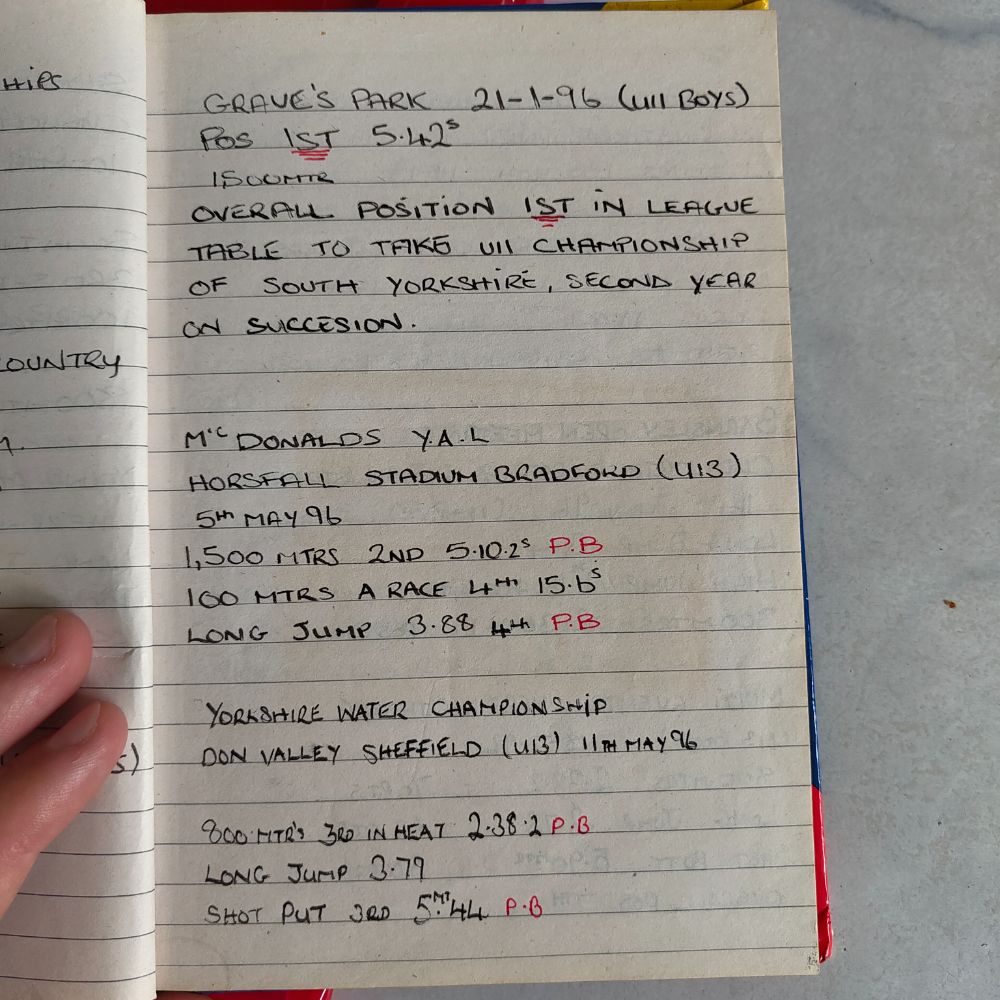 HIPS
COUNTRY
S)
GRAVE'S PARK 21-1-96 (U11 BOYS)
POS 1ST 5.42s
1,500MTR
OVERALL POSITION 1ST IN LEAGUE
TABLE TO TAKE U11 CHAMPIONSHIP
OF SOUTH YORKSHIRE, SECOND YEAR
ON SUCCESION.
McDONALDS Y.A.L
HORSFALL STADIUM BRADFORD (U13)
5th MAY 96
1,500 MTRS 2ND 5.10.2s P.B
100 MTRS A RACE 4TH 15.6s
LONG JUMP 3.88 4th P.B
YORKSHIRE WATER CHAMPIONSHIP
DON VALLEY SHEFFIELD (U13) 11TH MAY 96
800 MTR'S 3RD IN HEAT 2.38.2 P.B
LONG JUMP 3.79
SHOT PUT 3RD 5MT.44 P.B